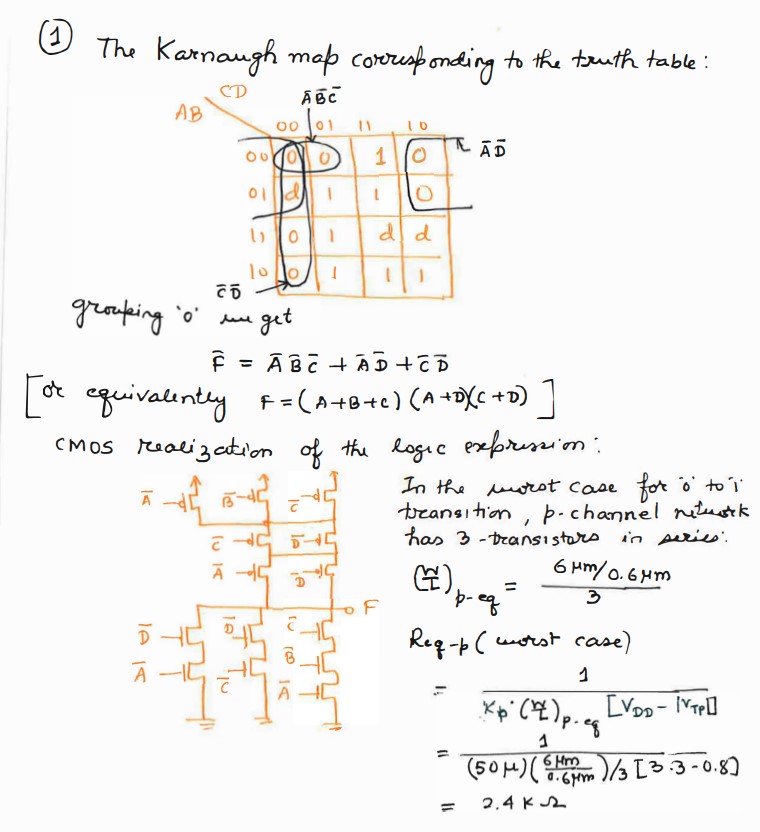 ①
The Karnaugh map corresponding to the truth table:
CD
AB
A̅ B̅ C̅
00 01 11 10
00 0 0 1 0
A̅ D̅
01 d 1 1 0
11 0 1 d d
10 0 1 1 1
C̅ D̅
grouping 'o' we get
F̅ = A̅ B̅ C̅ + A̅ D̅ + C̅ D̅
[or equivalently F = (A+B+C) (A+D)(C+D)]
CMOS realization of the logic expression:
A̅ B̅ C̅
C̅ D̅
A̅ D̅
F
D̅ D̅ C̅
A̅ C̅ B̅
A̅
In the worst case for 'o' to '1'
transition, p-channel network
has 3-transistors in series.
(W/L)p-eq = 6μm/0.6μm / 3
Req-p (worst case)
= 1 / Kp' (W/L)p-eq [VDD - |VTP|]
= 1 / (50μ)(6μm/0.6μm)/3 [3.3-0.8]
= 2.4 KΩ